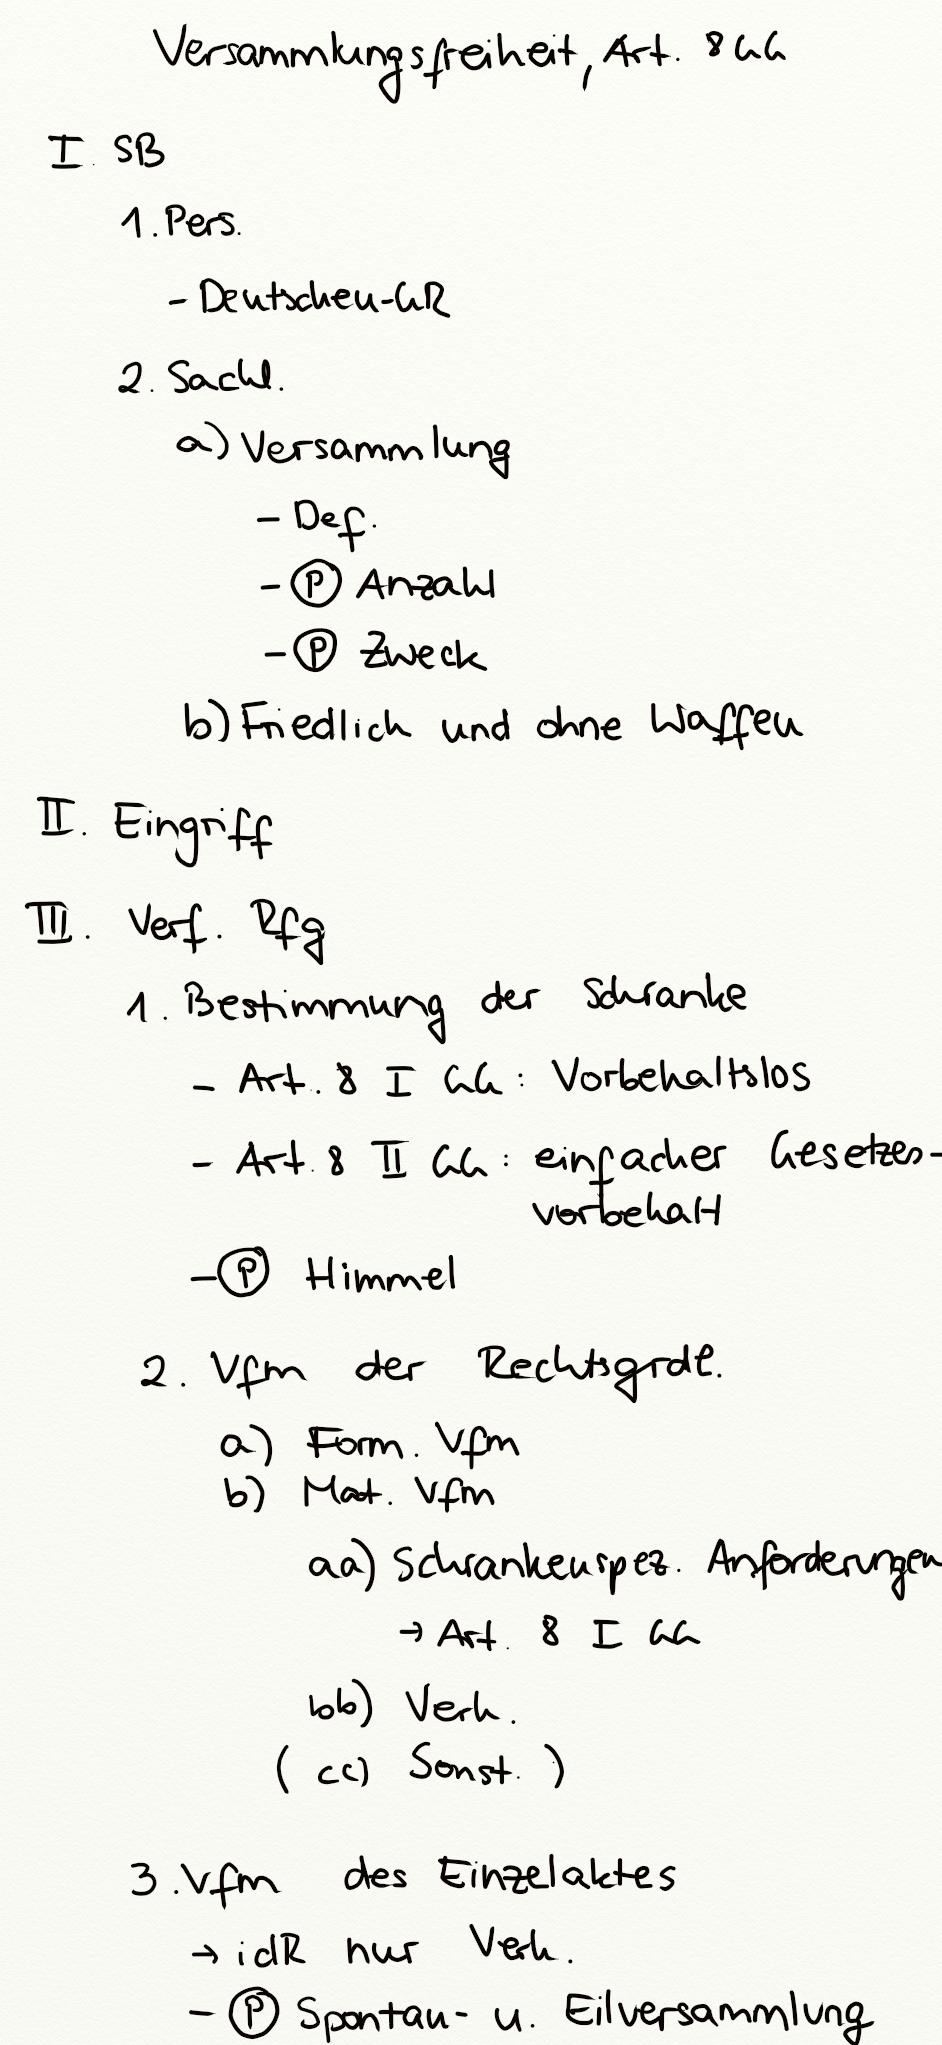 Versammlungsfreiheit, Art. 8 GG
I. SB
1. Pers.
- Deutschen-GR
2. Sachl.
a) Versammlung
- Def.
- Ⓟ Anzahl
- Ⓟ Zweck
b) Friedlich und ohne Waffen
II. Eingriff
III. Verf. Rfg
1. Bestimmung der Schranke
- Art. 8 I GG : Vorbehaltslos
- Art. 8 II GG : einfacher Gesetzes-
vorbehalt
- Ⓟ Himmel
2. Vfm der Rechtsgrdl.
a) Form. Vfm
b) Mat. Vfm
aa) Schrankenspez. Anforderungen
→ Art. 8 I GG
bb) Verh.
( cc) Sonst. )
3. Vfm des Einzelaktes
→ idR nur Verh.
- Ⓟ Spontan- u. Eilversammlung